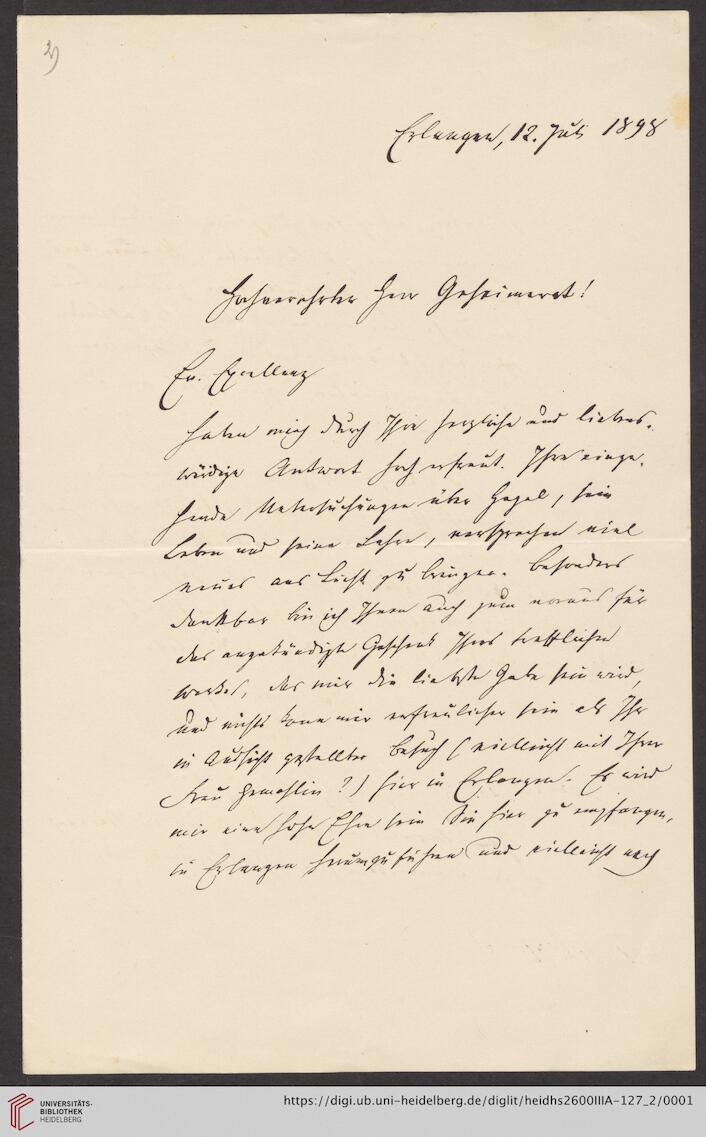 2)
Erlangen, 12. Juli 1898
Hochverehrter Herr Geheimerat!
Ew. Excellenz
haben mich durch Ihre herzliche und liebens-
würdige Antwort hoch erfreut. Ihre einge-
henden Untersuchungen über Hegel, sein
Leben und seine Lehre, versprechen viel
neues ans Licht zu bringen. Besonders
dankbar bin ich Ihnen auch zum voraus für
das angekündigte Geschenk Ihres trefflichen
Werkes, das mir die liebste Gabe sein wird,
und nichts kann mir erfreulicher sein als Ihr
in Aussicht gestellter Besuch (vielleicht mit Ihrer
Frau Gemahlin?) hier in Erlangen. Es wird
mir eine hohe Ehre sein Sie hier zu empfangen,
in Erlangen herumzuführen und vielleicht nach
UNIVERSITÄTS-
BIBLIOTHEK
HEIDELBERG
https://digi.ub.uni-heidelberg.de/diglit/heidhs2600IIIA-127_2/0001